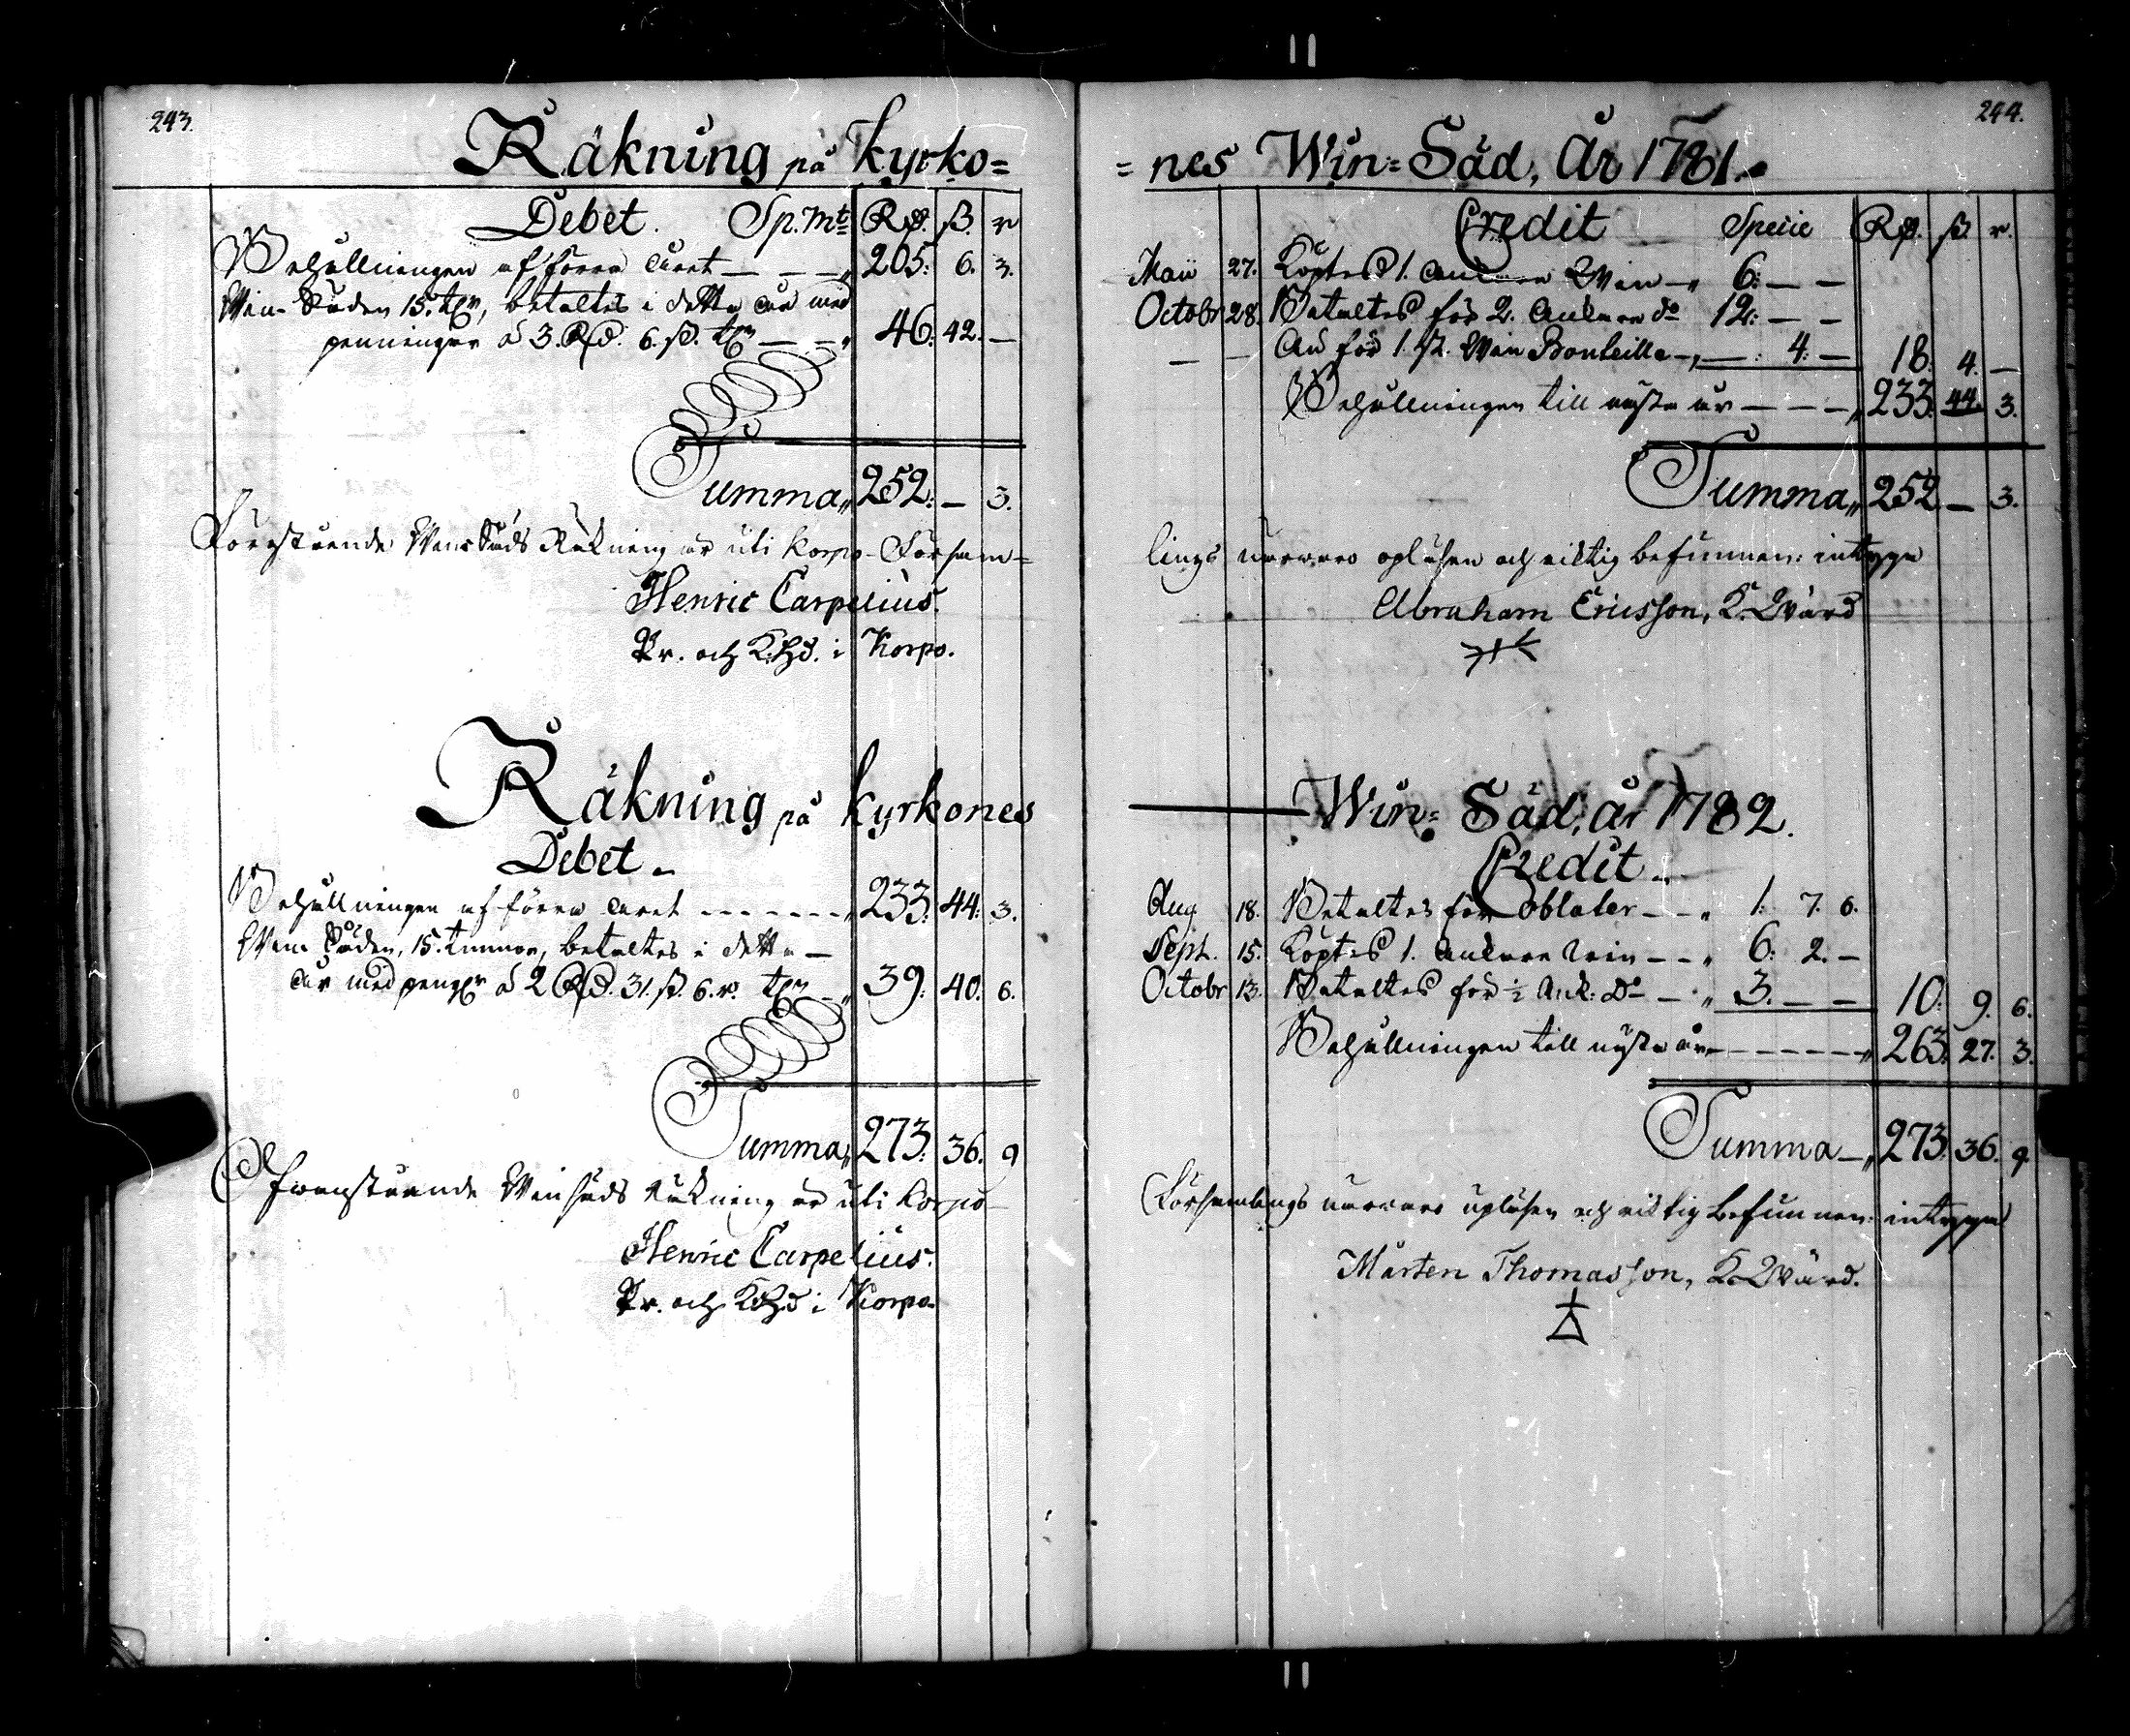 243.
Räkning på Kyrko=
Debet. Sp. mt Rd. ß. r
Behållningen af förra året — — — 205: 6. 3.
Win Säden 15. tr, betaltes i detta år med
penningar á 3. Rd. 6. ß. tn — — 46: 42. —
Summa 252: — 3.
Förestående Wins Säds Räkning är uti Korpo Försam=
Henric Carpelius.
Pr. och K:hd. i Korpo.
Räkning på Kyrkones
Debet.
Behållningen af förra året - - - - - - - 233: 44: 3.
Win Säden, 15. tunnor, betaltes i detta —
år med peng:r á 2 Rd. 31. ß. 6. r. tn — 39: 40. 6.
Summa 273: 36. 9
Ofwanstående Winsäds Räkning är uti Korpo
Henric Carpelius.
Pr. och K:hd i Korpo
244.
=nes Win=Säd, År 1781.
Credit Specie Rd. ß. r.
Maii 27. Köptes 1. Ankare Win — 6: — —
Octobr 28. Betaltes för 2. Ankare do 12: — —
— — An för 1. st. Win Bouteille — — : 4: — 18. 4. —
Behållningen till nästa år — — — 233. 44. 3.
Summa 252 — 3.
lings närwaro opläsen och riktig befunnen: intyga
Abraham Ericsson, K. Wärd
Win= Säd, år 1782.
Credit.
Aug 18. Betaltes för Oblater — — 1: 7. 6.
Sept. 15. Köptes 1. Ankare win — — 6: 2. —
Octobr 13. Betaltes för ½ Ank: Do — 3. — — 10: 9. 6.
Behållningen till nästa år - - - - - - 263: 27. 3.
Summa — 273. 36. 9.
Församlings närwaro upläsen och riktig befunnen: intyga
Mårten Thomasson, K. Wärd.